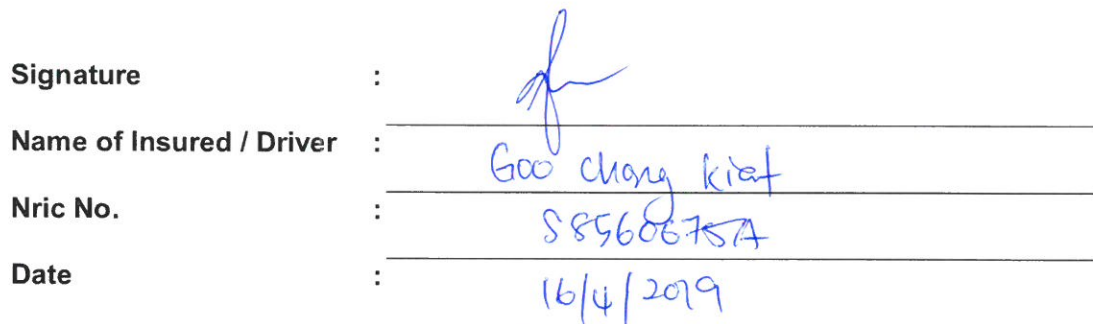 Signature :
Name of Insured / Driver : Goo Chong Kiat
Nric No. : S8560675A
Date : 16/4/2019